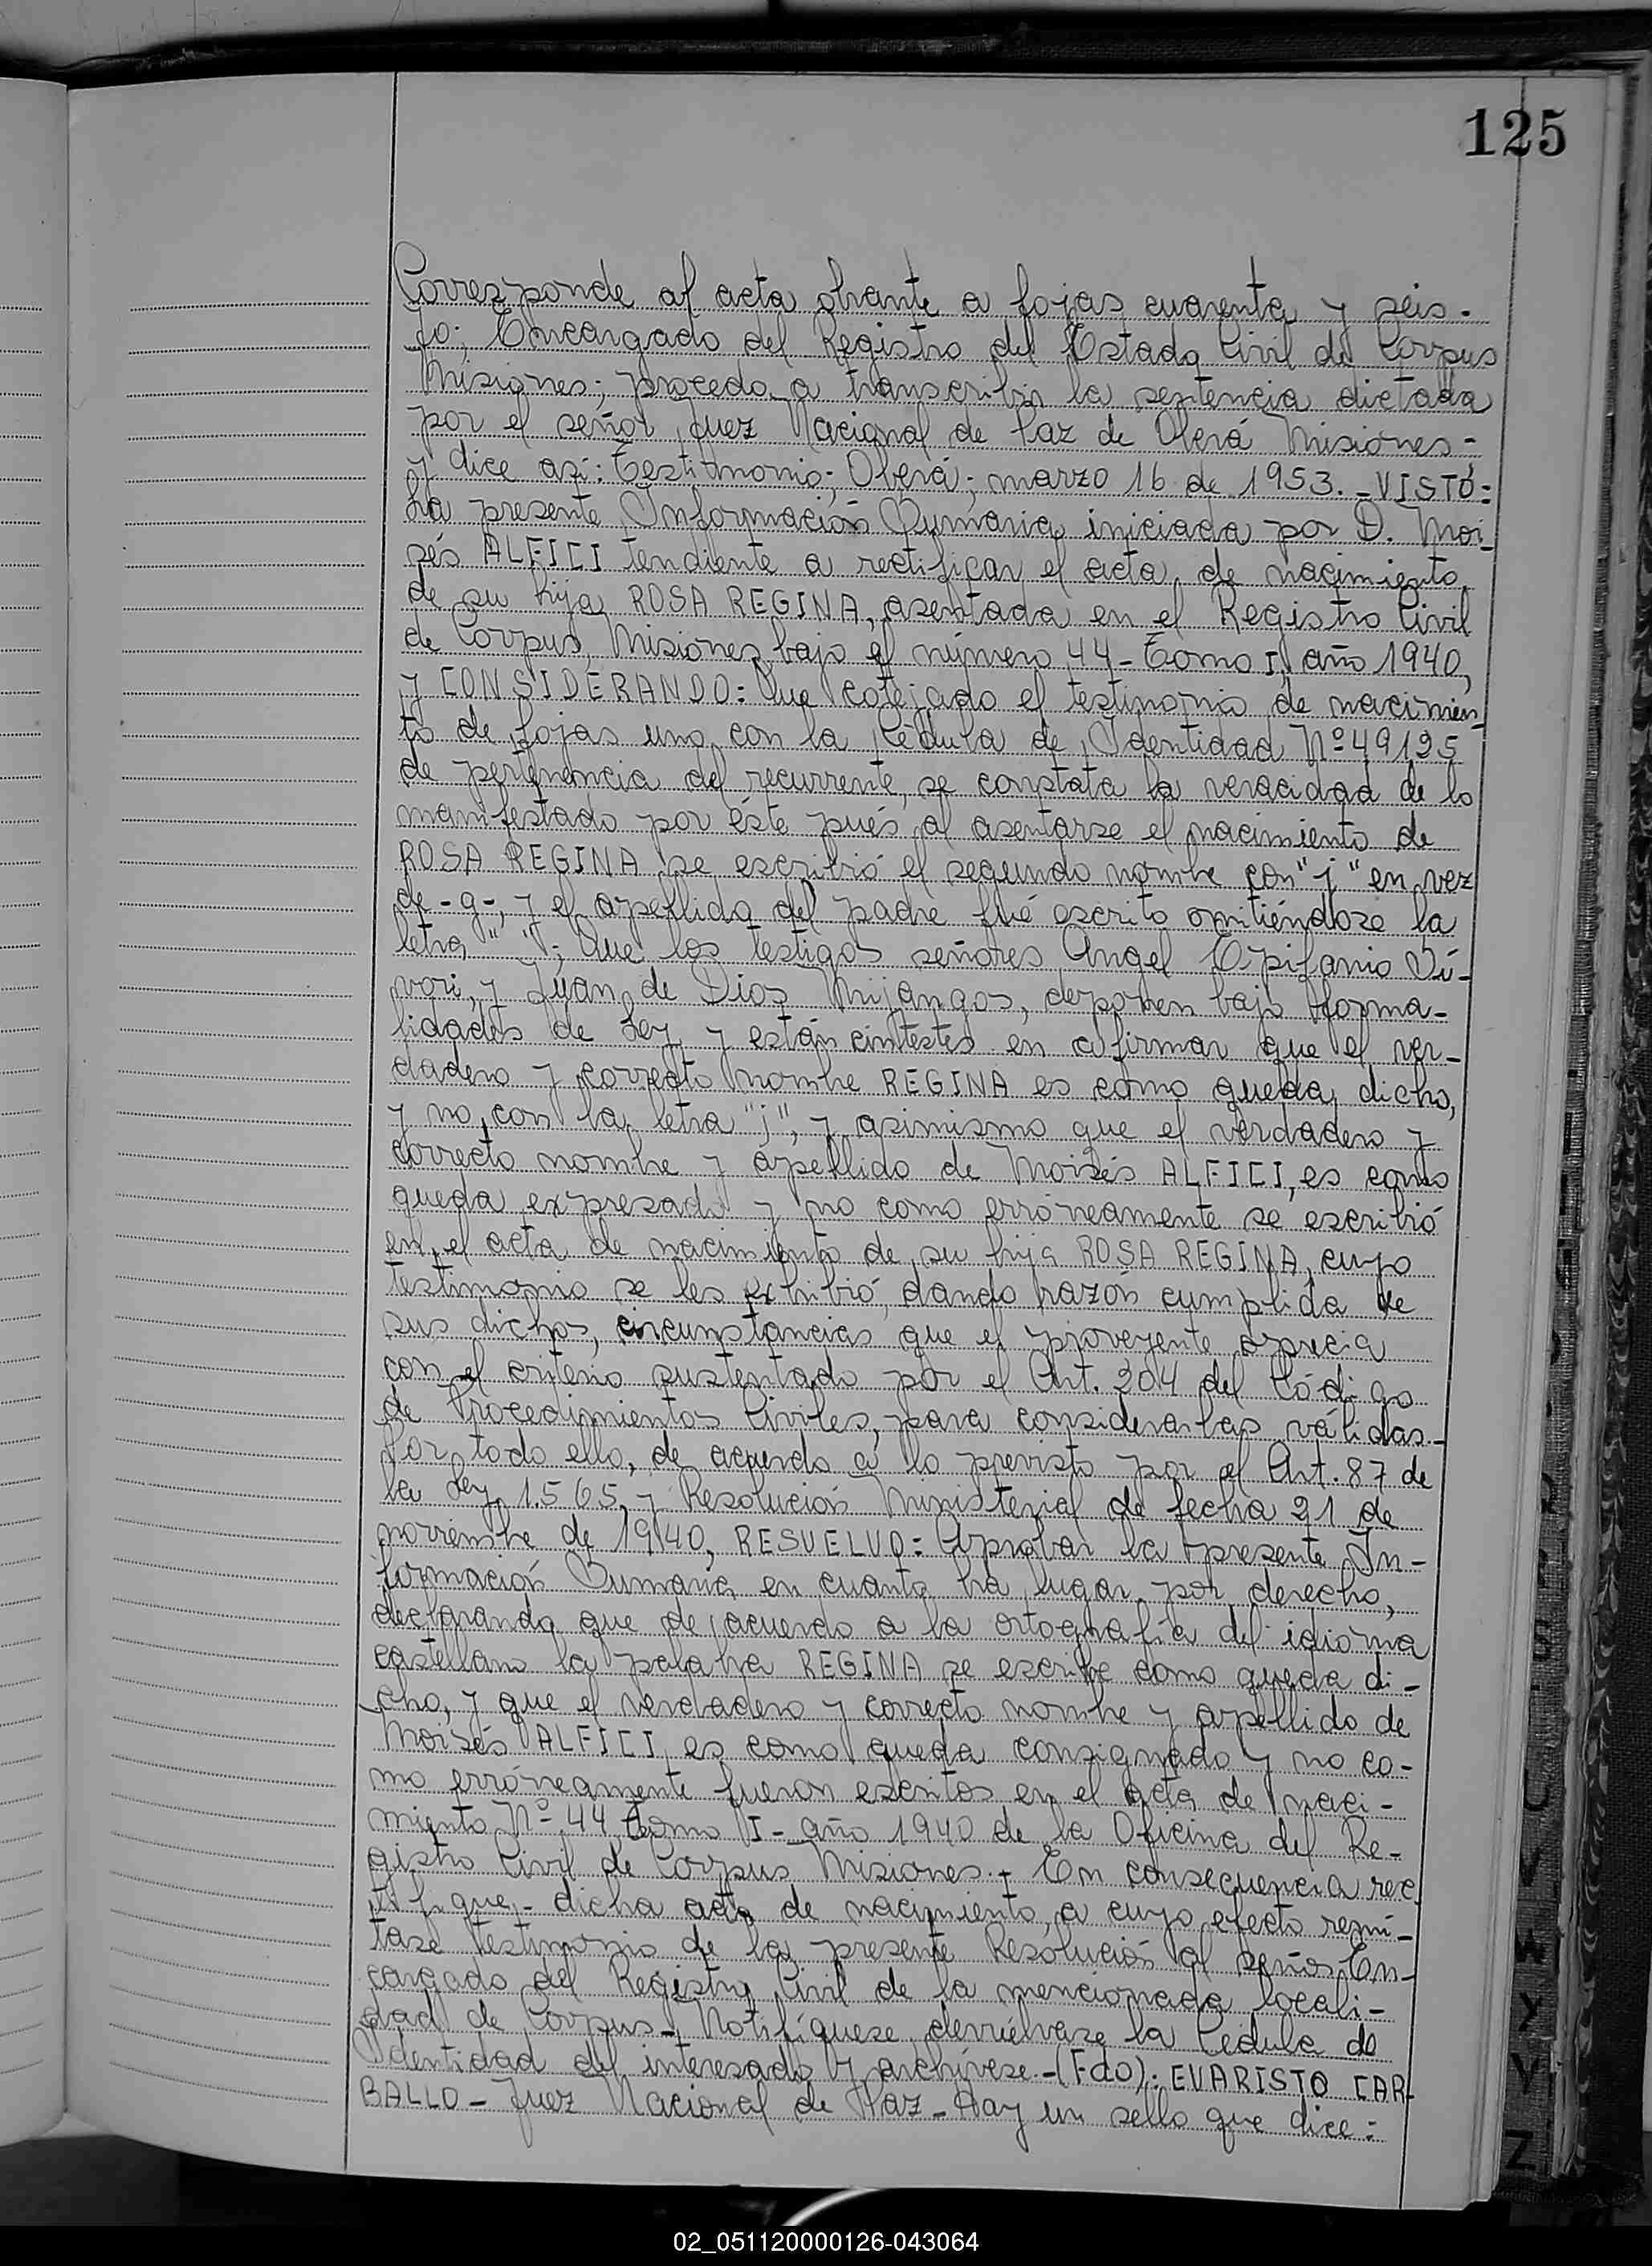 125
Corresponde al acta obrante a fojas cuarenta y seis.-
Yo; Encargado del Registro del Estado Civil de Corpus
Misiones; procedo a transcribir la sentencia dictada
por el señor Juez Nacional de Paz de Oberá Misiones-
y dice así: Testimonio; Oberá; marzo 16 de 1953.-VISTO:
La presente Información Sumaria iniciada por D. Moi-
sés ALFICI tendiente a rectificar el acta de nacimiento
de su hija ROSA REGINA, asentada en el Registro Civil
de Corpus, Misiones bajo el número 44- Tomo I, año 1940,
y CONSIDERANDO: Que cotejado el testimonio de nacimien-
to de fojas uno con la Cédula de Identidad Nº 49195
de pertenencia del recurrente, se constata la veracidad de lo
manifestado por éste pués al asentarse el nacimiento de
ROSA REGINA se escribió el segundo nombre con "j" en vez
de -g-, y el apellido del padre fué escrito omitiéndose la
letra " "; Que los testigos señores Angel Epifanio Vi-
vori, y Juan de Dios Mijangos, deponen bajo forma-
lidades de Ley y están contestes en afirmar que el ver-
dadero y correcto nombre REGINA es como queda dicho,
y no con la letra "j", y asimismo que el verdadero y
correcto nombre y apellido de Moisés ALFICI, es como
queda expresado y no como erróneamente se escribió
en el acta de nacimiento de su hija ROSA REGINA, cuyo
testimonio se les exhibió, dando razón cumplida de
sus dichos, circunstancias que el proveyente aprecia
con el criterio sustentado por el Art. 204 del Código
de Procedimientos Civiles, para considerarlas válidas.-
Por todo ello, de acuerdo a lo previsto por el Art. 87 de
la Ley 1.565, y Resolución Ministerial de fecha 21 de
noviembre de 1940, RESUELVO: Aprobar la presente In-
formación Sumaria en cuanto ha lugar por derecho,
declarando que de acuerdo a la ortografía del idioma
castellano la palabra REGINA se escribe como queda di-
cho, y que el verdadero y correcto nombre y apellido de
Moisés ALFICI es como queda consignado y no co-
mo erróneamente fueron escritos en el acta de naci-
miento Nº 44 Tomo I- año 1940 de la Oficina del Re-
gistro Civil de Corpus Misiones.- En consecuencia rec-
tifíque- dicha acta de nacimiento, a cuyo efecto remí-
tase testimonio de la presente Resolución al señor En-
cargado del Registro Civil de la mencionada locali-
dad de Corpus- Notifíquese, devuélvase la Cédula de
Identidad del interesado y archívese.-(Fdo): EVARISTO CAR-
BALLO- Juez Nacional de Paz- Hay un sello que dice:
U
V
W
Y
Z
02_051120000126-043064